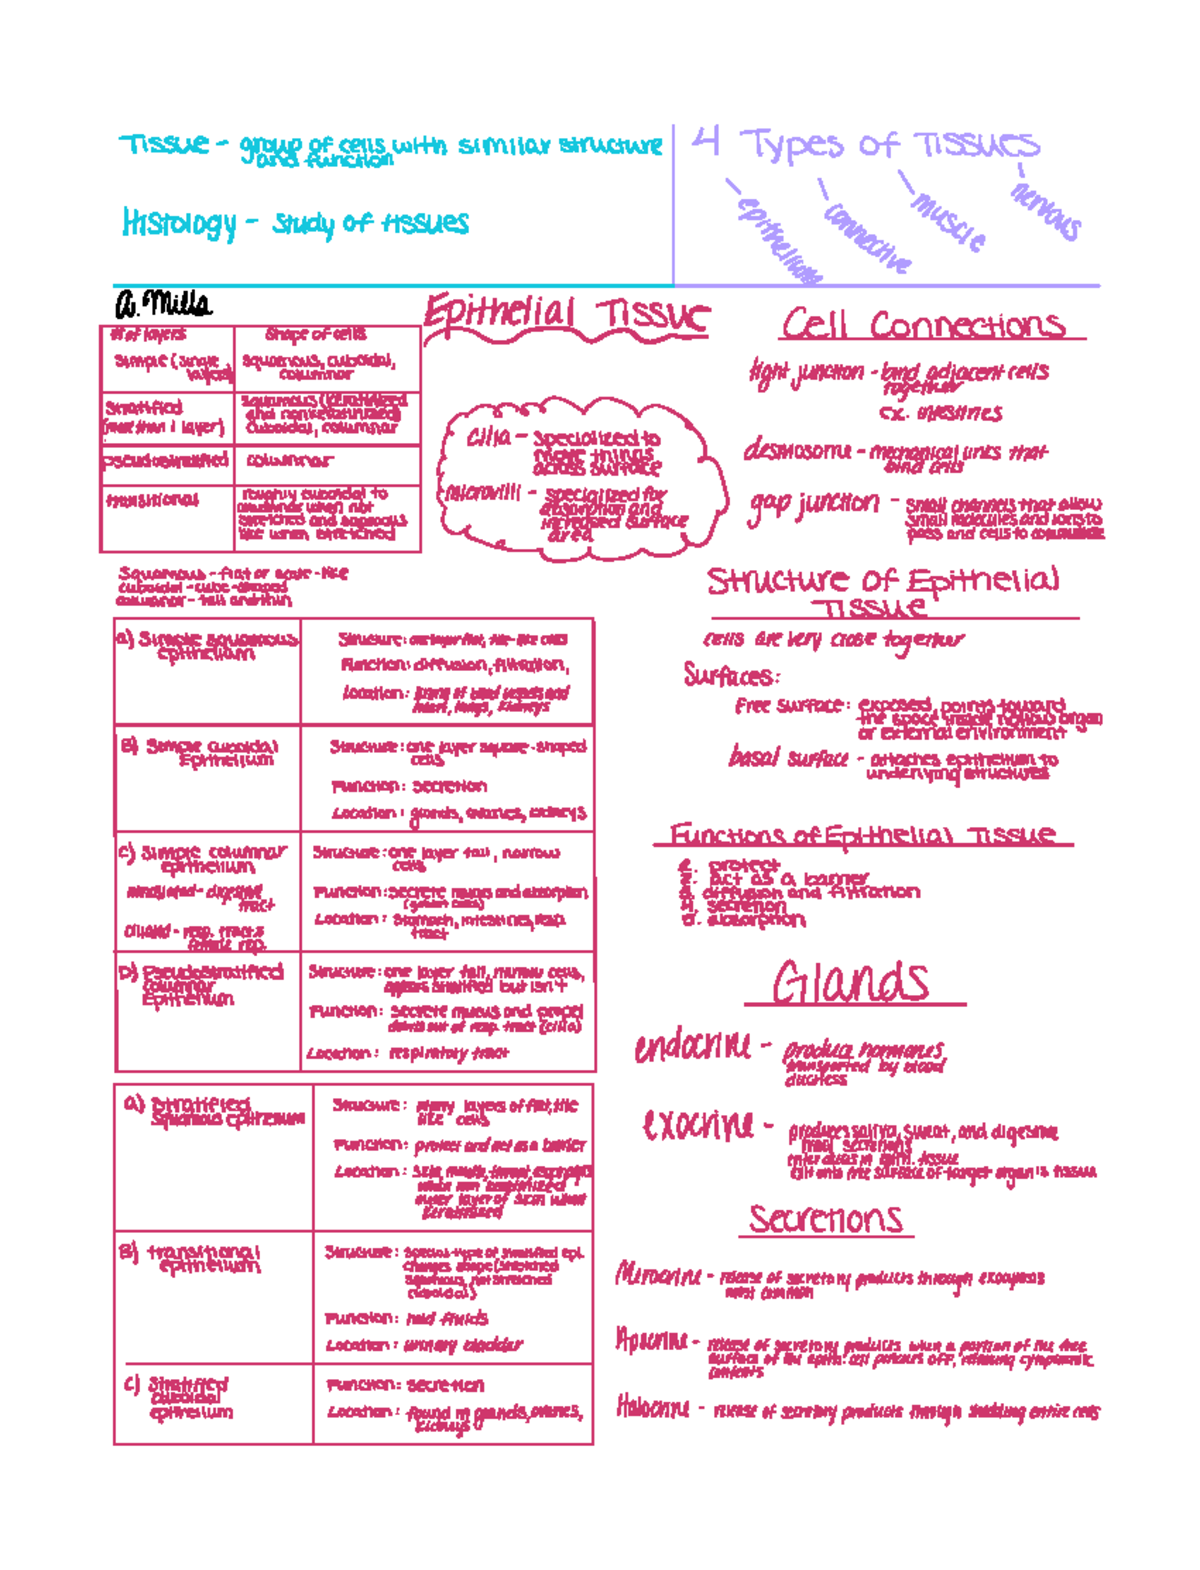 Tissue - group of cells with similar structure
and function
Histology - study of tissues
4 Types of Tissues
- epithelium
- connective
- muscle
- nervous
a. Mills
Epithelial Tissue
# of layers
Shape of cells
Simple (single
layer)
squamous, cuboidal,
columnar
Stratified
(more than 1 layer)
squamous (keratinized
and nonkeratinized)
cuboidal, columnar
pseudostratified
columnar
transitional
roughly cuboidal to
columnar when not
stretched and squamous
like when stretched
Squamous - flat or scale-like
cuboidal - cube-shaped
columnar - tall and thin
cilia - specialized to
move things
across surface
microvilli - specialized for
absorption and
increased surface
area
Cell Connections
tight junction - bind adjacent cells
together
ex. intestines
desmosome - mechanical links that
bind cells
gap junction - small channels that allow
small molecules and ions to
pass and cells to communicate
Structure of Epithelial
Tissue
cells are very close together
Surfaces:
Free surface: exposed, points toward
the space inside hollow organ
or external environment
basal surface - attaches epithelium to
underlying structures
Functions of Epithelial Tissue
1. protect
2. act as a barrier
3. diffusion and filtration
4. secretion
5. absorption
Glands
endocrine - produce hormones,
transported by blood
ductless
exocrine - produces saliva, sweat, and digestive
tract secretions
enter ducts in epith. tissue
exit onto free surface of target organ's tissue
Secretions
Merocrine - release of secretory products through exocytosis
most common
Apocrine - release of secretory products when a portion of the free
surface of the epith. cell pinches off, releasing cytoplasmic
contents
Holocrine - release of secretory products through shedding entire cells
a) Simple squamous
epithelium
Structure: one layer flat, tile-like cells
Function: diffusion, filtration,
Location: lining of blood vessels and
heart, lungs, kidneys
B) Simple cuboidal
Epithelium
Structure: one layer square-shaped
cells
Function: secretion
Location: glands, ovaries, kidneys
C) Simple columnar
epithelium
nonciliated - digestive
tract
ciliated - resp. tract &
female rep.
Structure: one layer tall, narrow
cells
Function: Secrete mucus and absorption
(goblet cells)
Location: Stomach, intestines, resp.
tract
D) Pseudostratified
columnar
Epithelium
Structure: one layer tall, narrow cells,
appears stratified but isn't
Function: secrete mucus and propel
debris out of resp. tract (cilia)
Location: respiratory tract
a) Stratified
Squamous epithelium
Structure: many layers of flat, tile
like cells
Function: protect and act as a barrier
Location: Skin, mouth, throat, esophagus
when non keratinized
outer layer of skin when
keratinized
B) transitional
epithelium
Structure: special type of stratified epi.
changes shape (stretched
squamous, not stretched
cuboidal)
Function: hold fluids
Location: urinary bladder
C) Stratified
cuboidal
epithelium
Function: secretion
Location: found in glands, ovaries,
kidneys